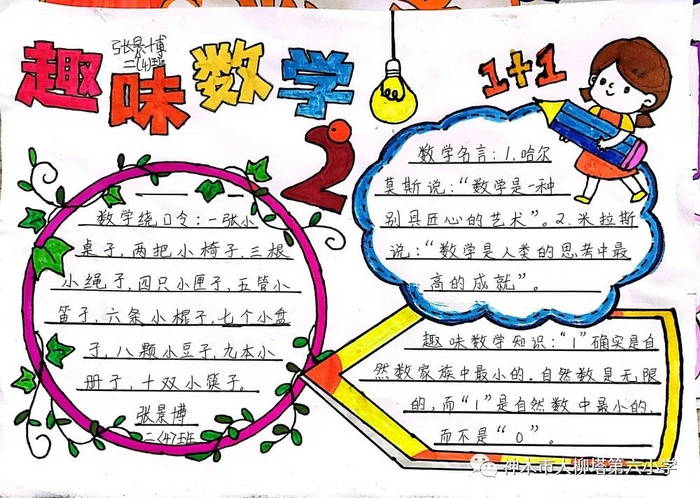 趣味数学
张景博
二(4)班
2
1+1
数学绕口令:一张小
桌子,两把小椅子,三根
小绳子,四只小匣子,五管小
笛子,六条小棍子,七个小盆
子,八颗小豆子,九本小
册子,十双小筷子。
张景博
二(4)班
数学名言:1.哈尔
莫斯说:“数学是一种
别具匠心的艺术”。2.米拉斯
说:“数学是人类的思考中最
高的成就”。
趣味数学知识:“1”确实是自
然数家族中最小的。自然数是无限
的,而“1”是自然数中最小的,
而不是“0”。
神木市大柳塔第六小学